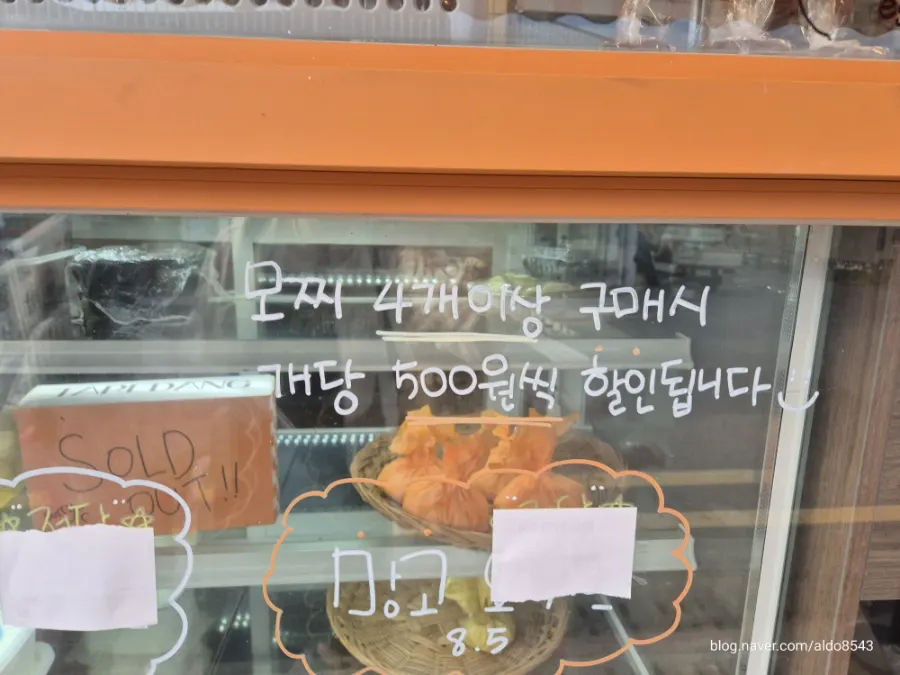 모찌 4개이상 구매시
개당 500원씩 할인됩니다
SOLD
OUT!!
망고
8.5
blog.naver.com/aldo8543